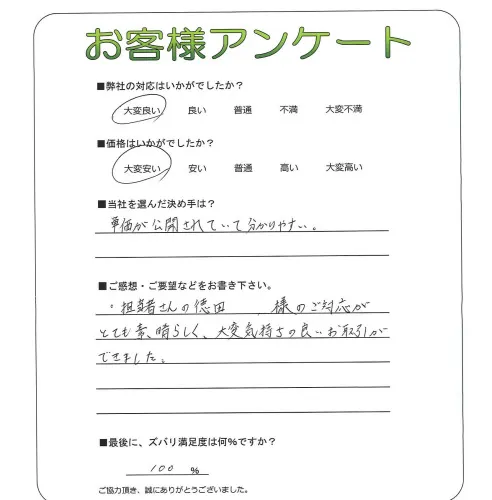 お客様アンケート
■弊社の対応はいかがでしたか？
大変良い 良い 普通 不満 大変不満
■価格はいかがでしたか？
大変安い 安い 普通 高い 大変高い
■当社を選んだ決め手は？
単価が公開されていて分かりやすい。
■ご感想・ご要望などをお書き下さい。
・担当者さんの徳田 様のご対応が
とても素晴らしく、大変気持ちの良いお取引が
できました。
■最後に、ズバリ満足度は何%ですか？
100 %
ご協力頂き、誠にありがとうございました。